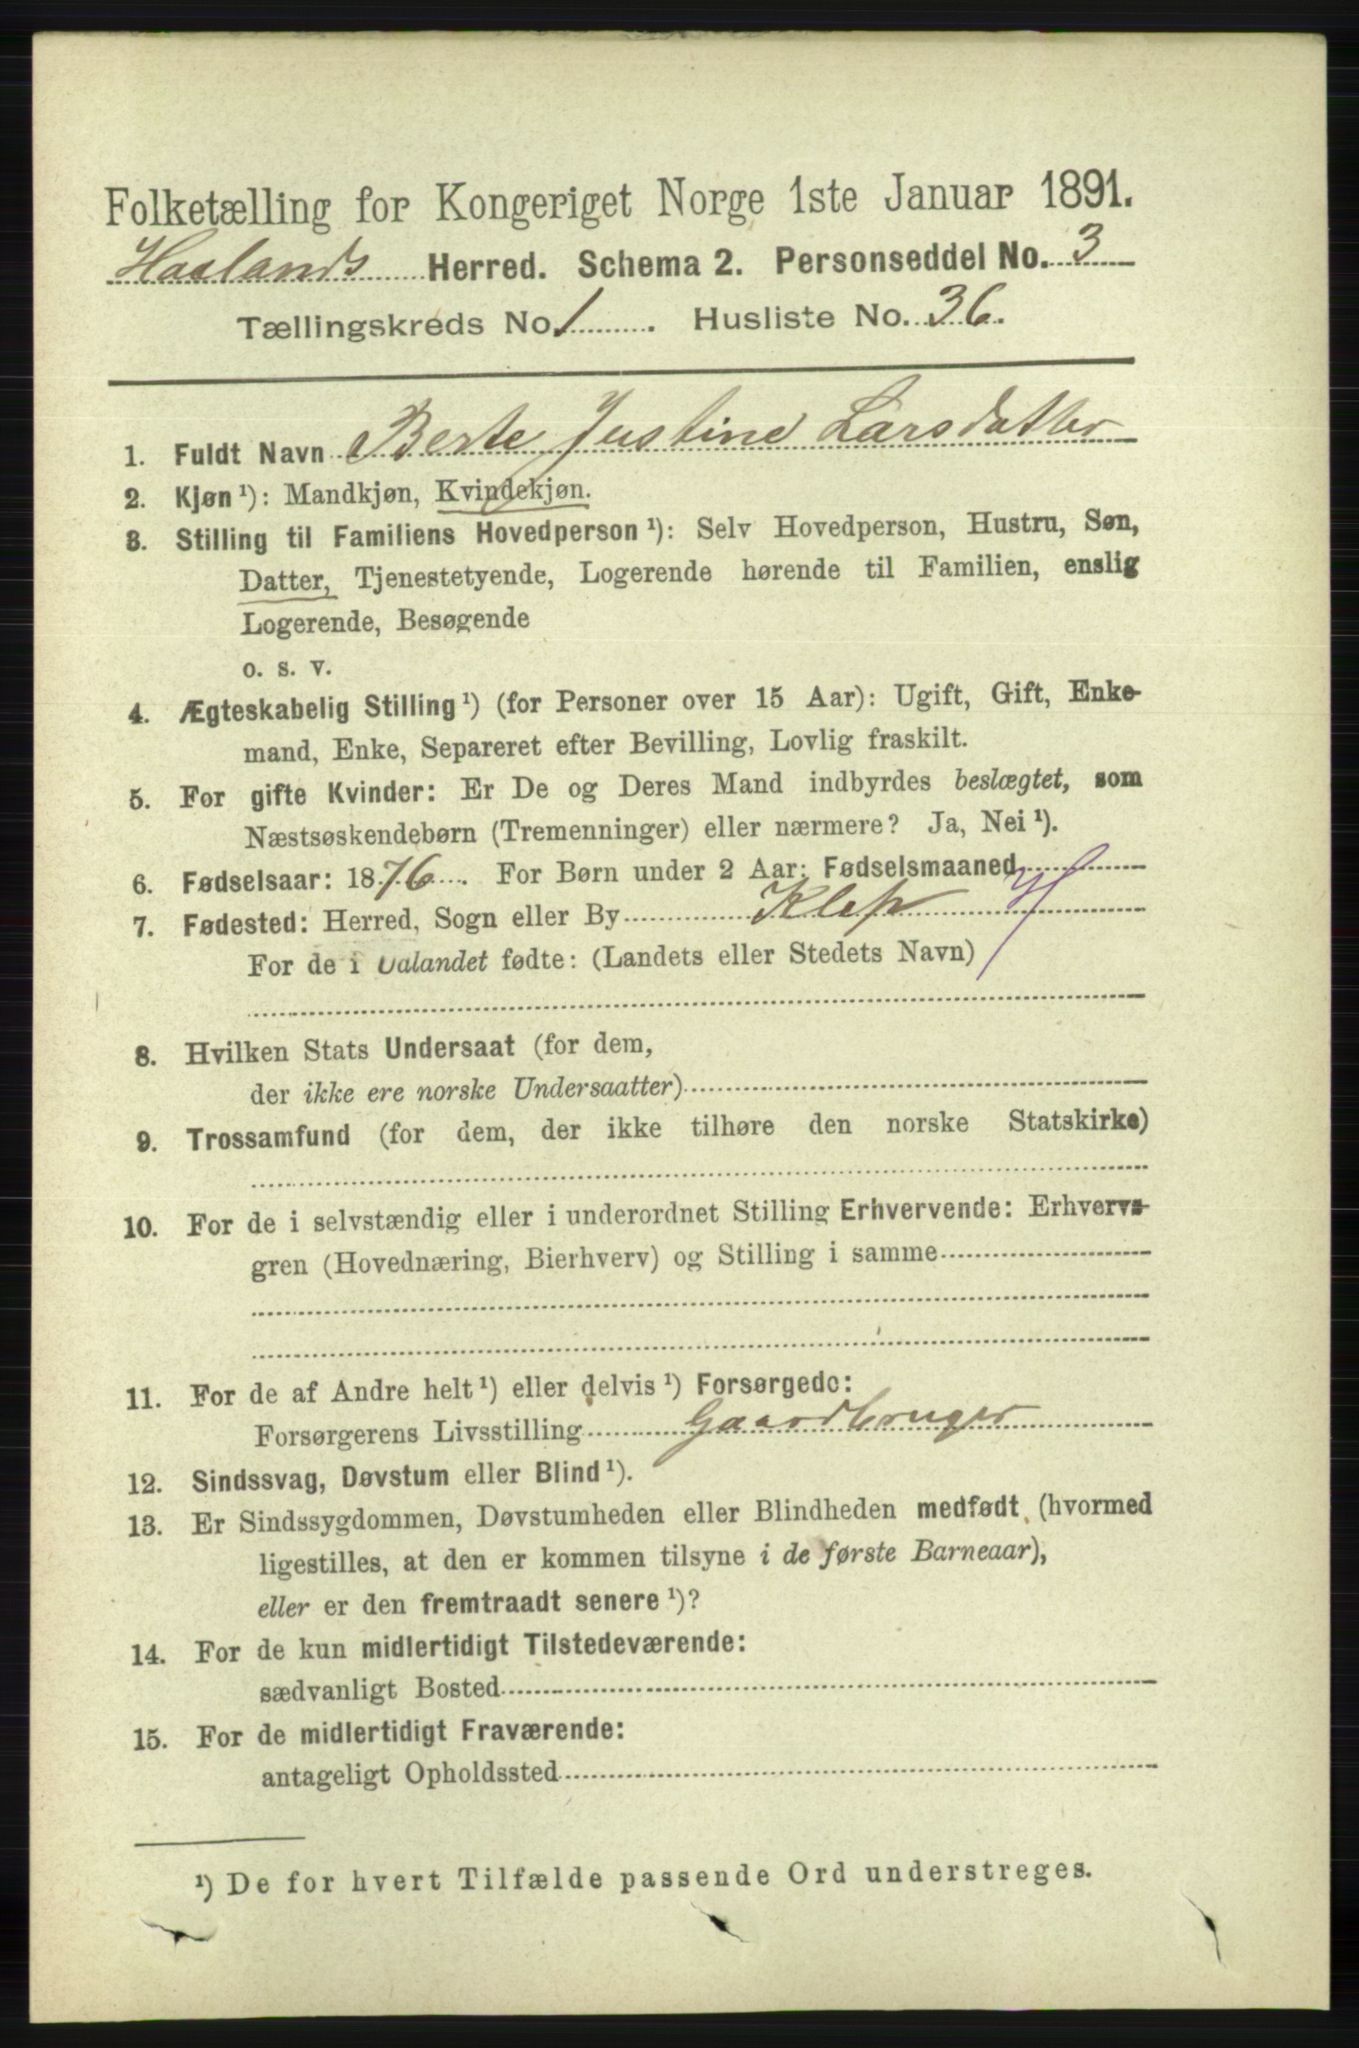 Folketælling for Kongeriget Norge 1ste Januar 1891.
Haalands Herred. Schema 2. Personseddel No. 3
Tællingskreds No. 1. Husliste No. 36.
1. Fuldt Navn Berte Justine Larsdatter
2. Kjøn ¹): Mandkjøn, Kvindekjøn.
3. Stilling til Familiens Hovedperson ¹): Selv Hovedperson, Hustru, Søn,
Datter, Tjenestetyende, Logerende hørende til Familien, enslig
Logerende, Besøgende
o. s. v.
4. Ægteskabelig Stilling ¹) (for Personer over 15 Aar): Ugift, Gift, Enke-
mand, Enke, Separeret efter Bevilling, Lovlig fraskilt.
5. For gifte Kvinder: Er De og Deres Mand indbyrdes beslægtet, som
Næstsøskendebørn (Tremenninger) eller nærmere? Ja, Nei ¹).
6. Fødselsaar: 1876. For Børn under 2 Aar: Fødselsmaaned
7. Fødested: Herred, Sogn eller By Klep
For de i Udlandet fødte: (Landets eller Stedets Navn)
8. Hvilken Stats Undersaat (for dem,
der ikke ere norske Undersaatter)
9. Trossamfund (for dem, der ikke tilhøre den norske Statskirke)
10. For de i selvstændig eller i underordnet Stilling Erhvervende: Erhvervs-
gren (Hovednæring, Bierhverv) og Stilling i samme
11. For de af Andre helt ¹) eller delvis ¹) Forsørgede:
Forsørgerens Livsstilling Gaardbruger
12. Sindssvag, Døvstum eller Blind ¹).
13. Er Sindssygdommen, Døvstumheden eller Blindheden medfødt (hvormed
ligestilles, at den er kommen tilsyne i de første Barneaar),
eller er den fremtraadt senere ¹)?
14. For de kun midlertidigt Tilstedeværende:
sædvanligt Bosted
15. For de midlertidigt Fraværende:
antageligt Opholdssted
¹) De for hvert Tilfælde passende Ord understreges.